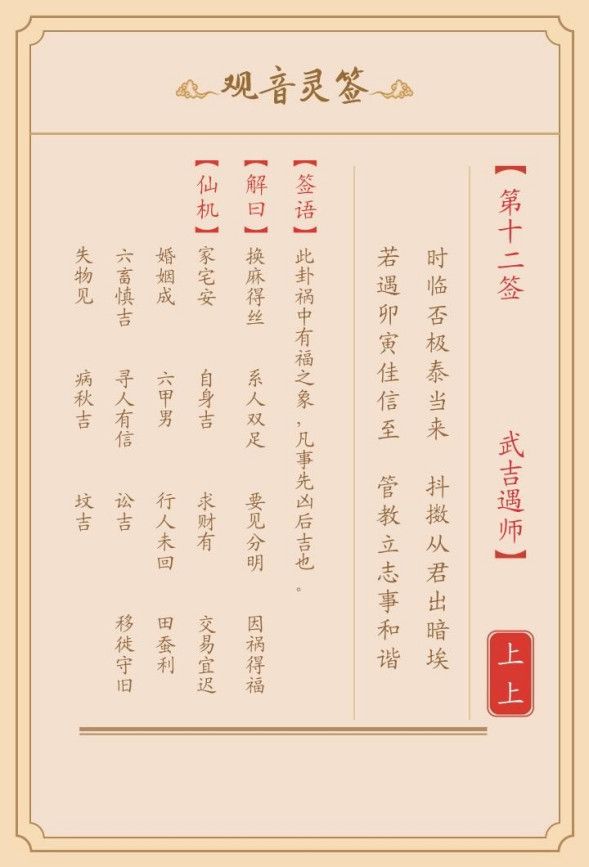 观音灵签
【第十二签 武吉遇师】
上上
时临否极泰当来 抖擞从君出暗埃
若遇卯寅佳信至 管教立志事和谐
【签语】此卦祸中有福之象,凡事先凶后吉也。
【解曰】换麻得丝 系人双足 要见分明 因祸得福
【仙机】家宅安 自身吉 求财有 交易宜迟
婚姻成 六甲男 行人未回 田蚕利
六畜慎吉 寻人有信 讼吉 移徙守旧
失物见 病秋吉 坟吉